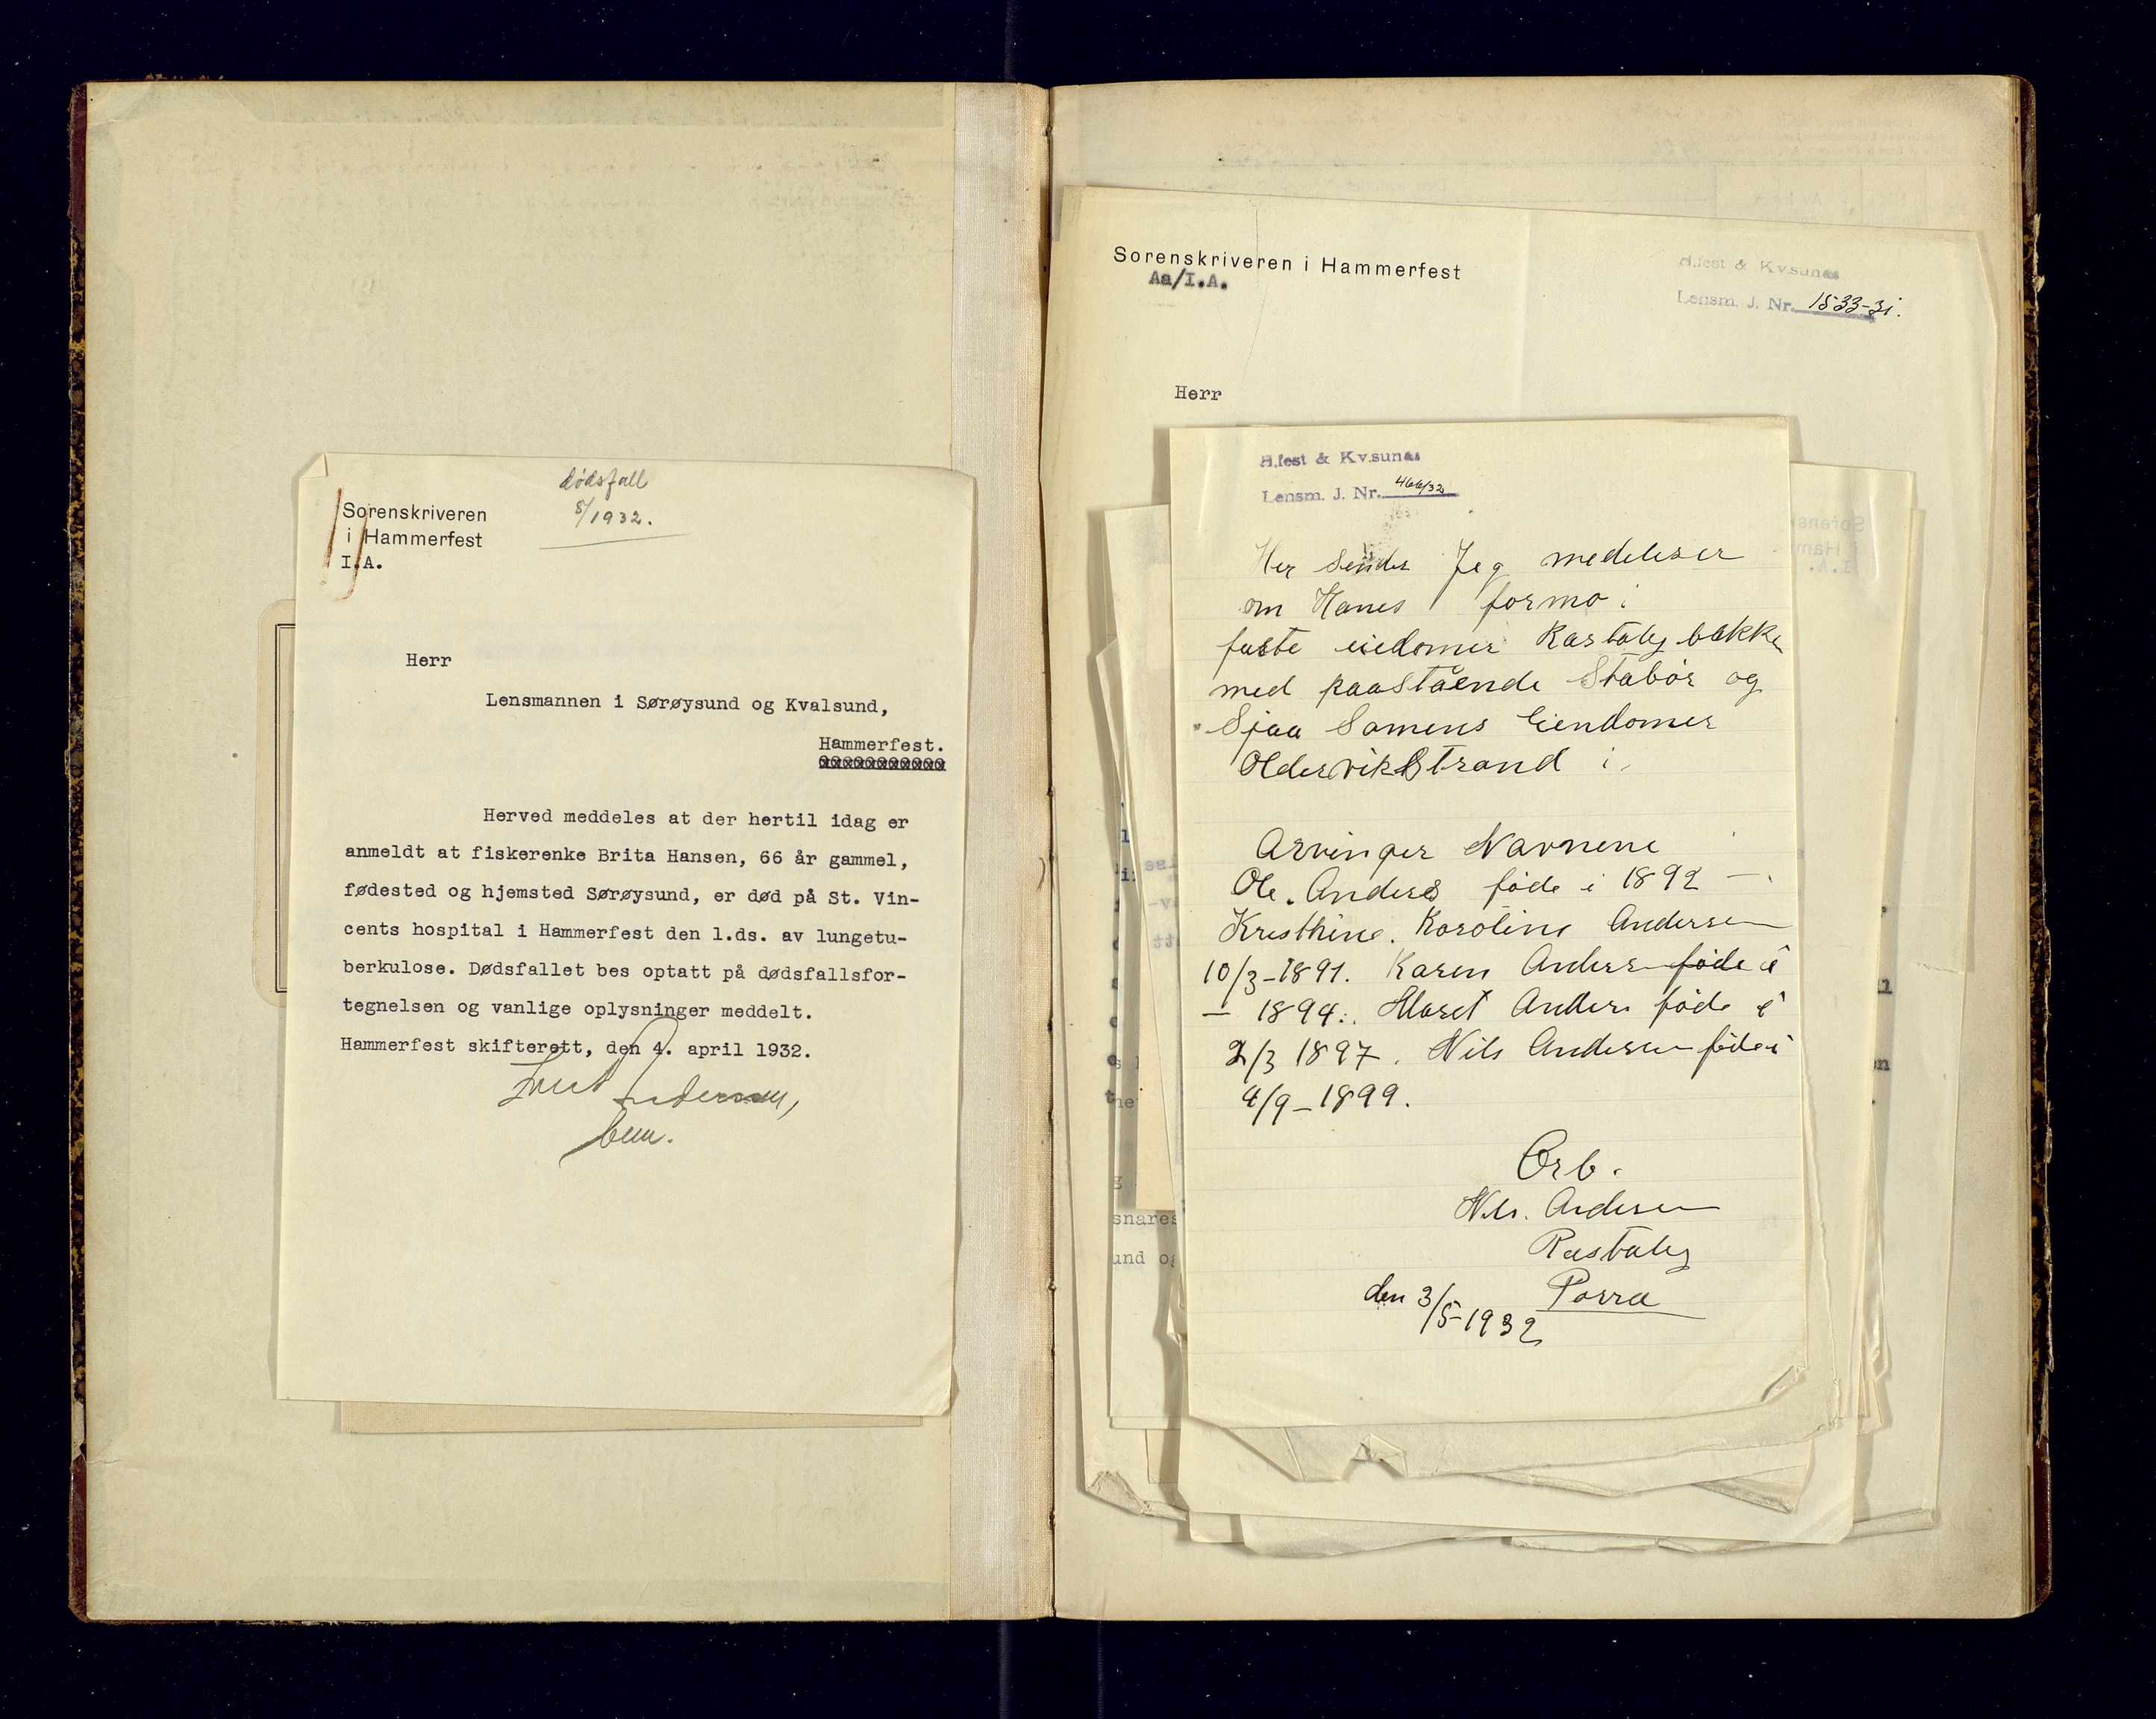 dødsfall
8/1932.
Sorenskriveren
i Hammerfest
I.A.
Herr
Lensmannen i Sørøysund og Kvalsund,
Hammerfest.
Herved meddeles at der hertil idag er
anmeldt at fiskerenke Brita Hansen, 66 år gammel,
fødested og hjemsted Sørøysund, er død på St. Vin-
cents hospital i Hammerfest den 1.ds. av lungetu-
berkulose. Dødsfallet bes optatt på dødsfallsfor-
tegnelsen og vanlige oplysninger meddelt.
Hammerfest skifterett, den 4. april 1932.
Sorenskriveren i Hammerfest
Aa/I.A.
H.fest & Kv.sunds
Lensm. J. Nr. 1533-31.
Herr
H.fest & Kv.sunds
Lensm. J. Nr. 466/32
Her sender Jeg medeleser
om Hanes formo:
faste eiedomer Rastaby bakke
med paastående Stabór og
Sjaa Samens Eiendomer
Oldervikstrand i.
Arvinger Navnene
Ole. Anders føde i 1892 —.
Kristhine. Karoline Andersen
10/3-1891. Karen Andersen føde i
— 1894.. Maret Anders føde i
2/3 1897. Nils Andersen føde i
4/9-1899.
Ærb.
Nils. Andersen
Rastaby
den 3/5-1932 Porsa
snares
und og